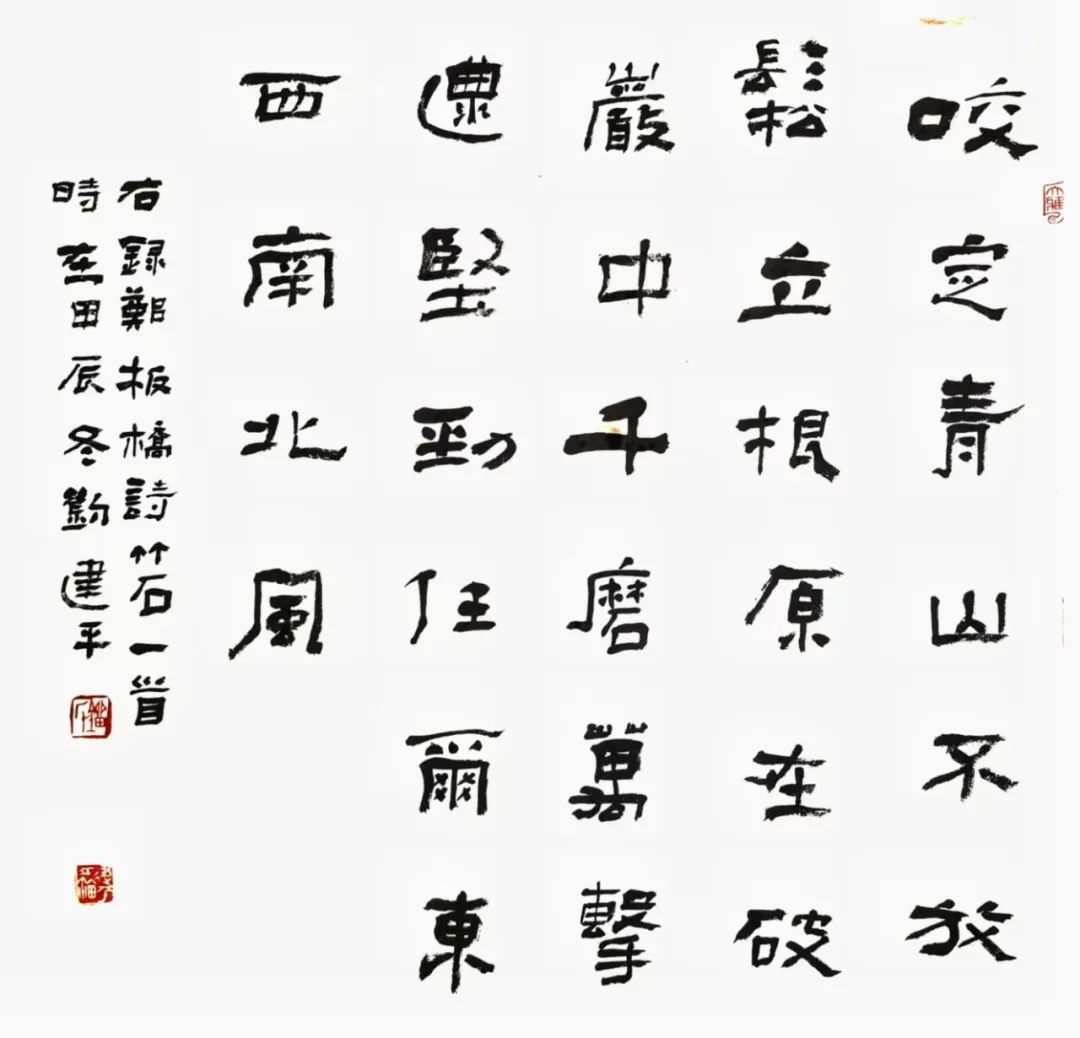 咬定青山不放
鬆立根原在破
巖中千磨萬擊
還堅勁任爾東
西南北風
右録鄭板橋詩竹石一首
時在甲辰冬劉建平